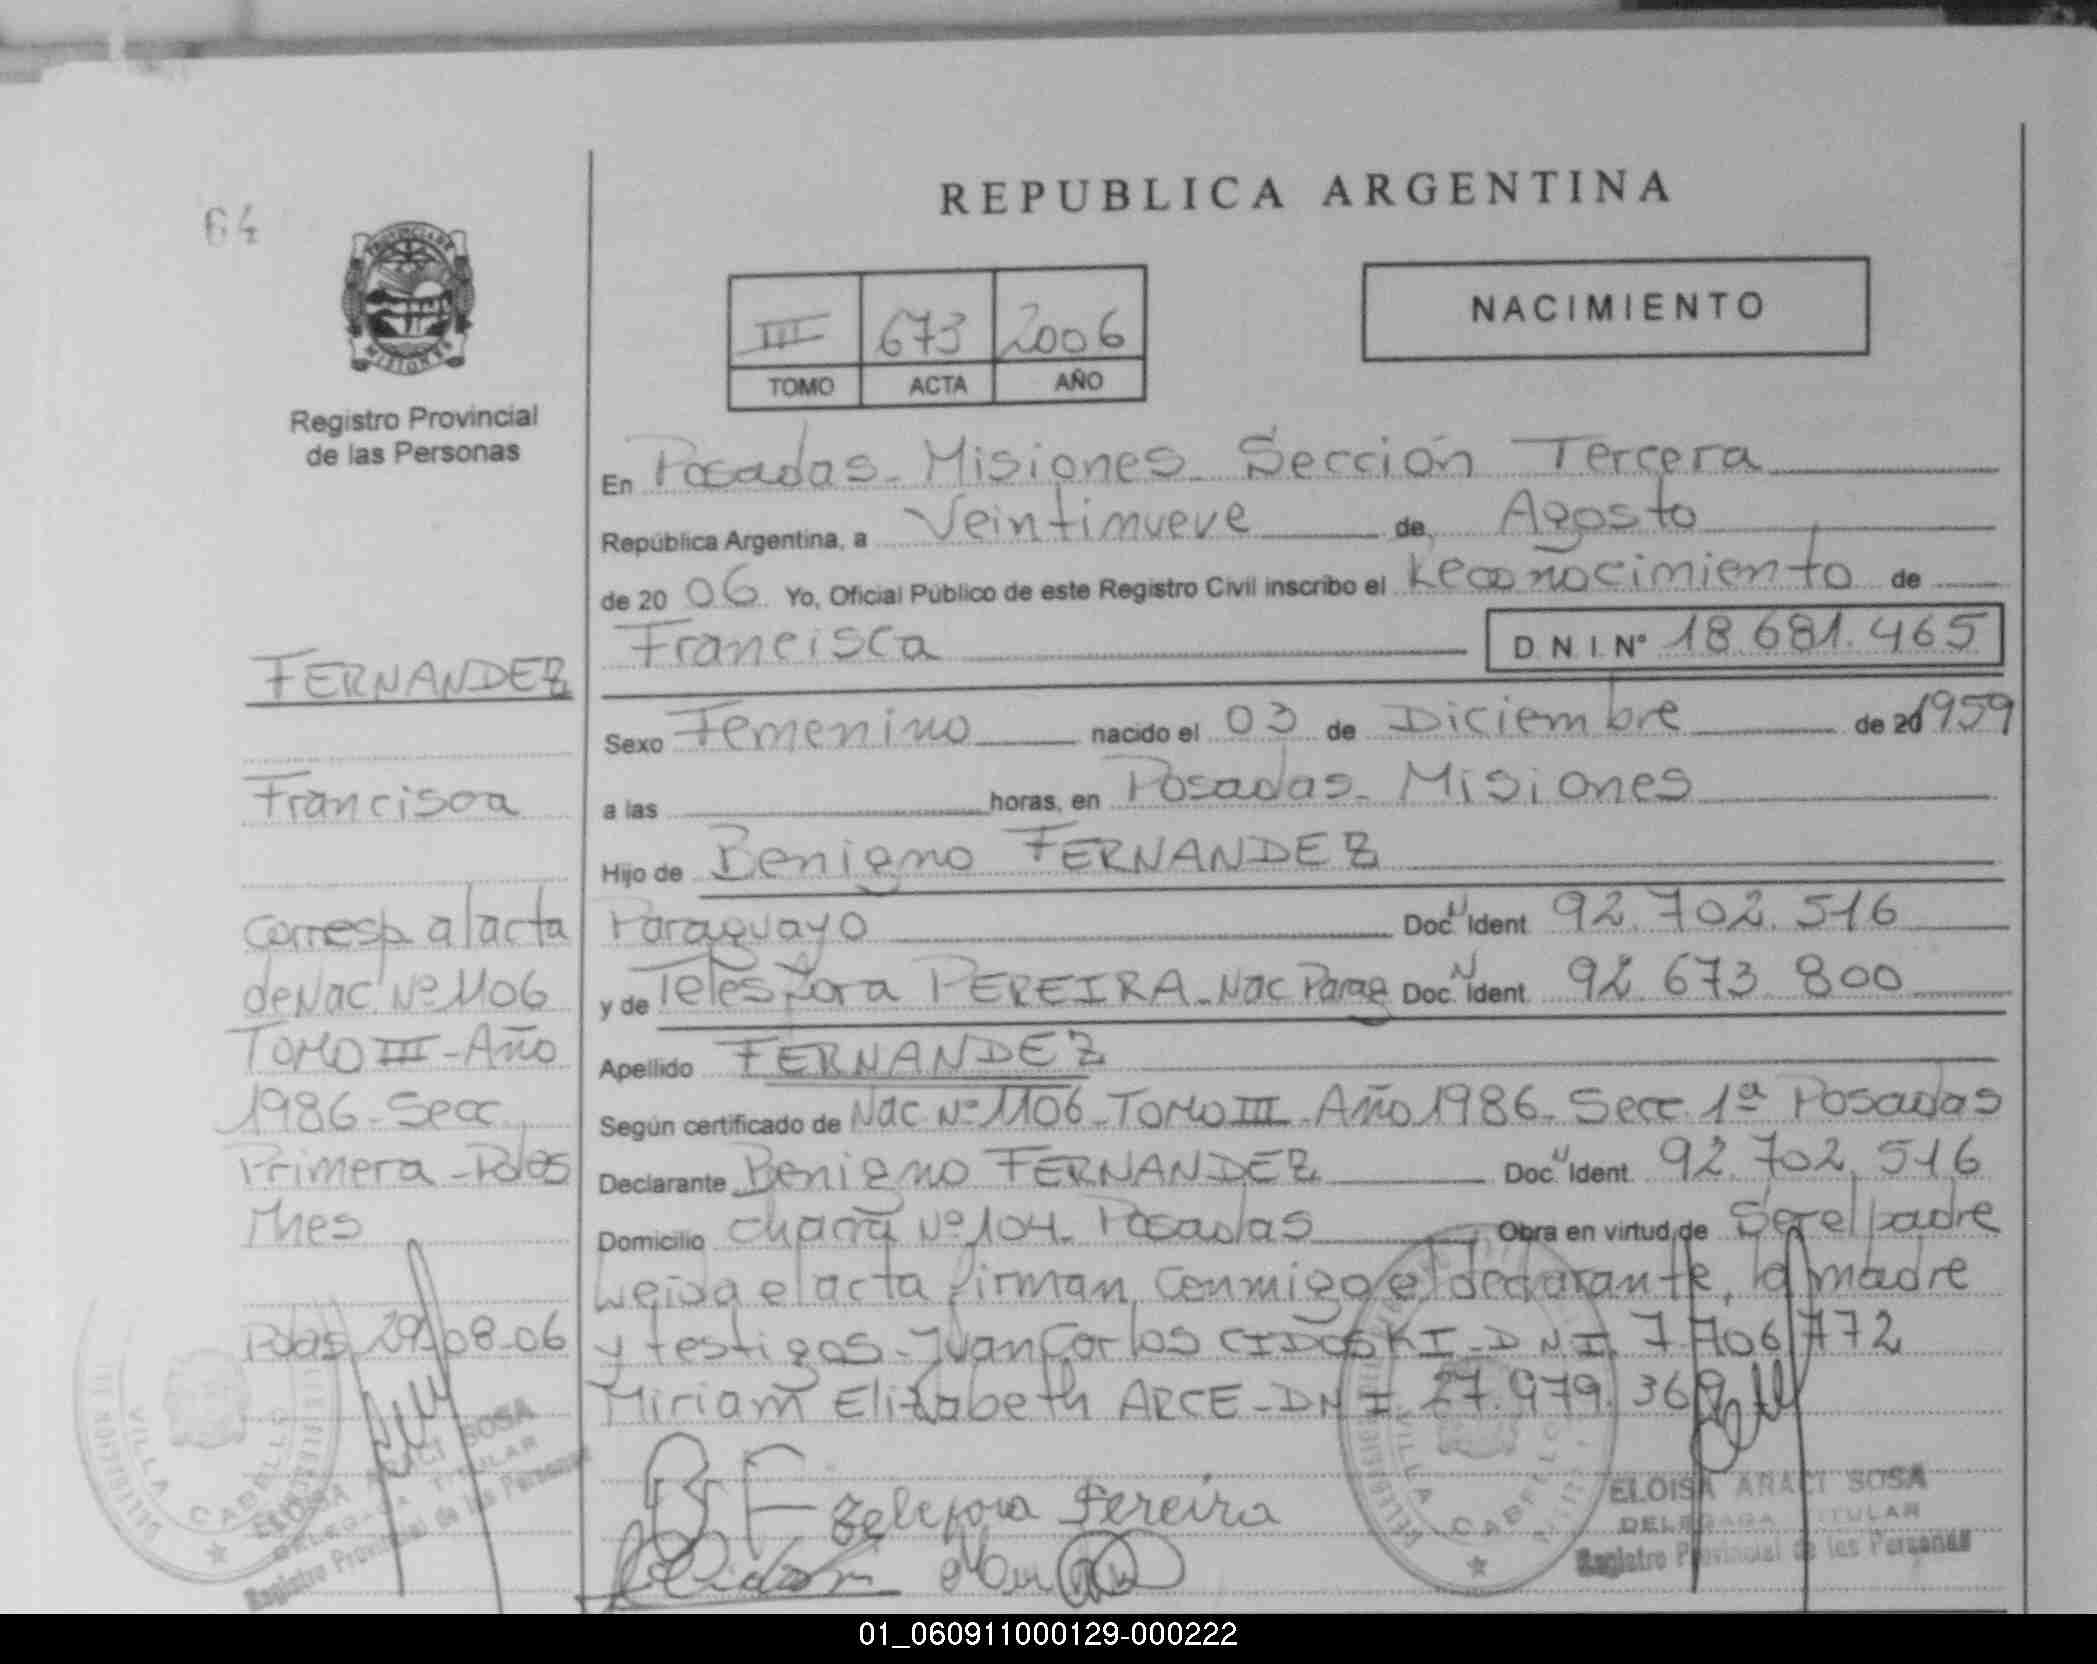 64
REPUBLICA ARGENTINA
PROVINCIA DE
MISIONES
Registro Provincial
de las Personas
III 673 2006
TOMO ACTA AÑO
NACIMIENTO
En Posadas - Misiones - Sección Tercera
República Argentina, a Veintinueve de Agosto
de 20 06 Yo, Oficial Público de este Registro Civil inscribo el Reconocimiento de
Francisca D.N.I. Nº 18.681.465
Sexo Femenino nacido el 03 de Diciembre de 20 1959
a las horas, en Posadas - Misiones
Hijo de Benigno FERNANDEZ
Paraguayo Doc. Ident. 92.702.516
y de Telesfora PEREIRA - Nac Parag Doc. Ident. 92.673.800
Apellido FERNANDEZ
Según certificado de Nac Nº 1106 - TOMO III - Año 1986 - Secc 1ª Posadas
Declarante Benigno FERNANDEZ Doc. Ident. 92.702.516
Domicilio chacra Nº 104 - Posadas Obra en virtud de Ser el padre
Leída el acta firman conmigo el declarante, la madre
y testigos - Juan Carlos CIDOSKI - DNI 7.706.772
Miriam Elizabeth ARCE - DNI 27.979.369
B F Zelefora Pereira
ELOISA ARACI SOSA
DELEGADA TITULAR
Registro Provincial de las Personas
VILLA CABELLO
FERNANDEZ
Francisca
Corresp al acta
de Nac Nº 1106
TOMO III - Año
1986 - Secc
Primera - Pdas
Mnes
Pdas 29-08-06
VILLA CABELLO
ELOISA ARACI SOSA
DELEGADA TITULAR
Registro Provincial de las Personas
01_060911000129-000222